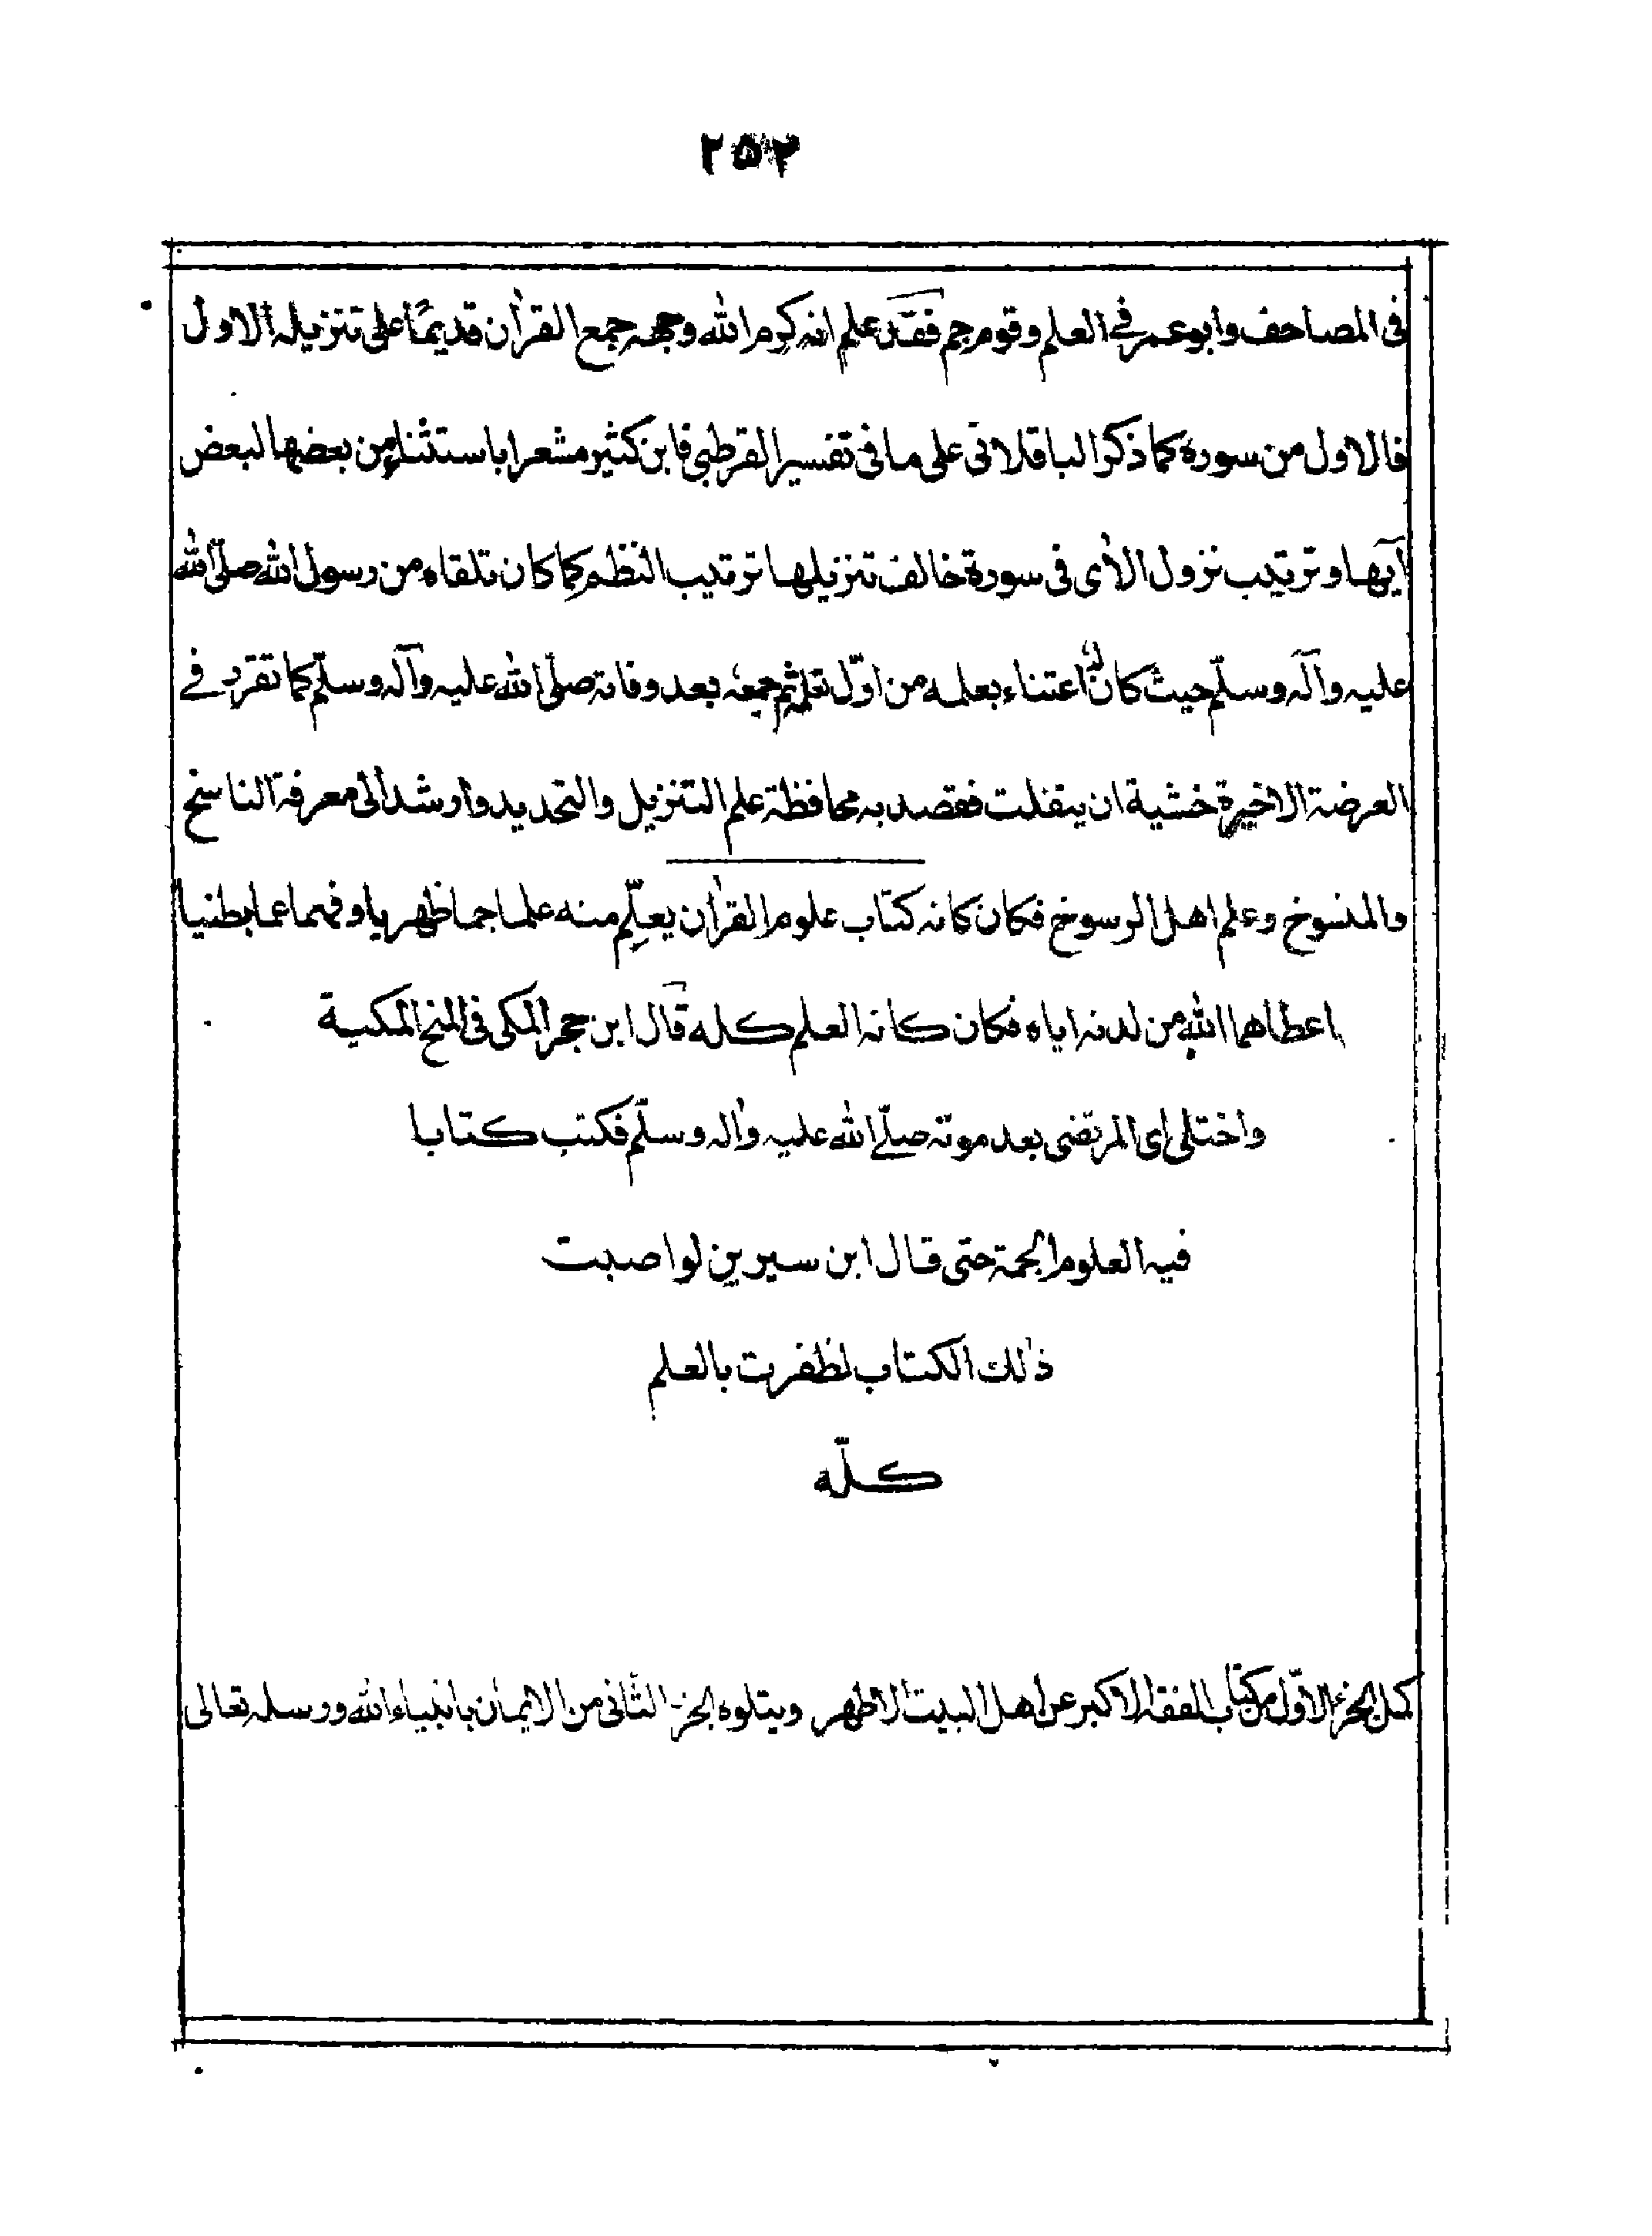 ٢٥٢
فى المصاحف وابو عمر فے العلم وقوم جم فقد علم انه كرم الله وجهه جمع القرأن قديمًا على تنزيله الاول
فالاول من سوره كما ذكر الباقلانى على ما فى تفسير القرطبى فابن كثير مشعرا باستثناء من بعضها لبعض
آيها وترتيب نزول الأى فى سورة خالف تنزيلها ترتيب النظم كما كان تلقاه من رسول الله صلّى الله
عليه وآله وسلّم حيث كان له اعتناء بعلمه من اوّل تعلمه ثم جمعه بعد وفاته صلّى الله عليه وآله وسلّم كما تقرر فے
العرضة الاخيرة خشية ان يتفلت فقصد به محافظة علم التنزيل والتحديد وارشد الى معرفة الناسخ
والمنسوخ وعلم اهل الرسوخ فكان كانه كتاب علوم القرأن يعلّم منه علما جما ظهريا وفهما عما بطنيا
اعطاهما الله من لدنه اياه فكان كانه العلم كله قال ابن حجر المكى فى المنح المكية
واختلى اى المرتضى بعد موته صلے الله عليه وأله وسلّم فكتب كتابا
فيه العلوم الجمة حتى قال ابن سيرين لو اصبت
ذٰلك الكتاب لظفرت بالعلم
كلّه
كمل الجزء الاوّل من كتاب الفقه الاكبر عن اهل البيت الاطهر ويتلوه الجزء الثانى من الايمان بانبياء الله ورسله تعالى